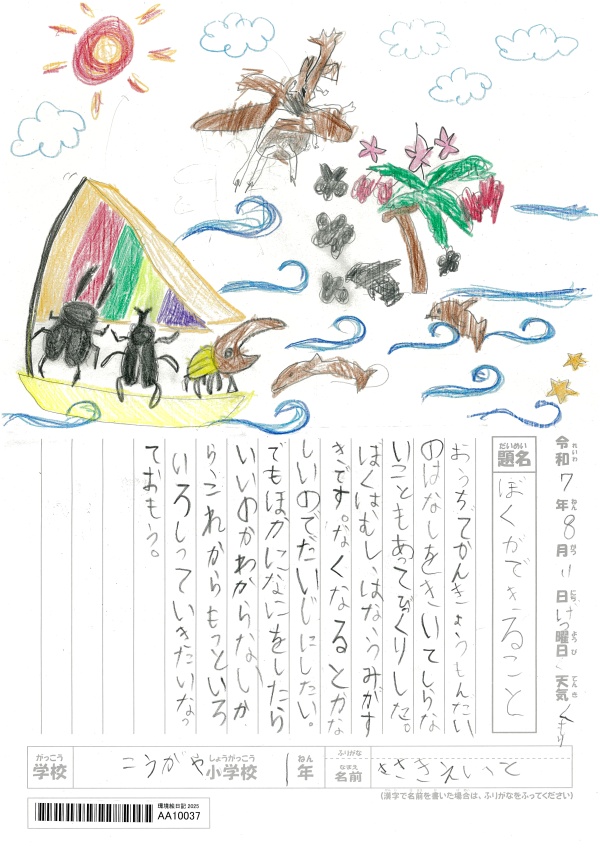 令和7年8月11日げつ曜日 天気 くもり
れいわ ねん がつ にち ようび てんき
だいめい
題名
ぼくができること
おうちでかんきょうもんだい
のはなしをきいてしらな
いこともあってびっくりした。
ぼくはむし、はな、うみがす
きです。なくなるとかな
しいのでだいじにしたい。
でもほかになにをしたら
いいのかわからないか
ら、これからもっといろ
いろしっていきたいな。っ
ておもう。
がっこう
学校
こうがや小学校
しょうがっこう
1年
ねん
ふりがな
なまえ
名前
ささきえいと
(漢字で名前を書いた場合は、ふりがなをふってください)
環境絵日記 2025
AA10037